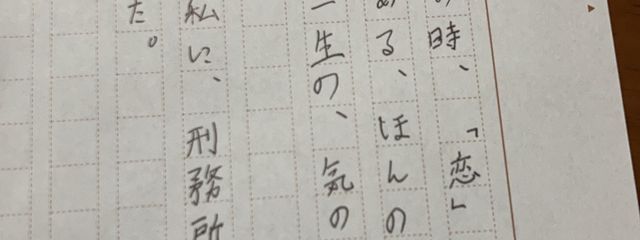 時、「恋」
める、ほんの
一生の、気の
私に、刑務所
た。